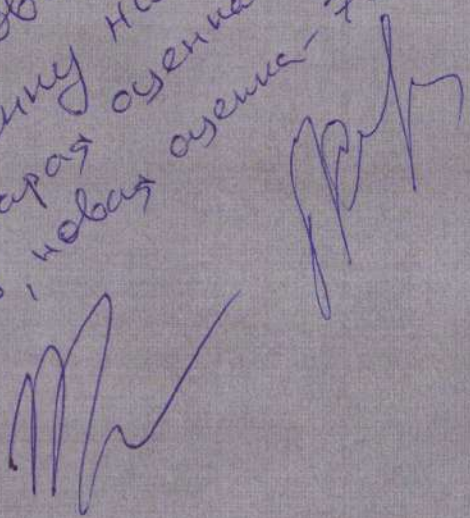 ов
нну на
арая оценка
, новая оценка -